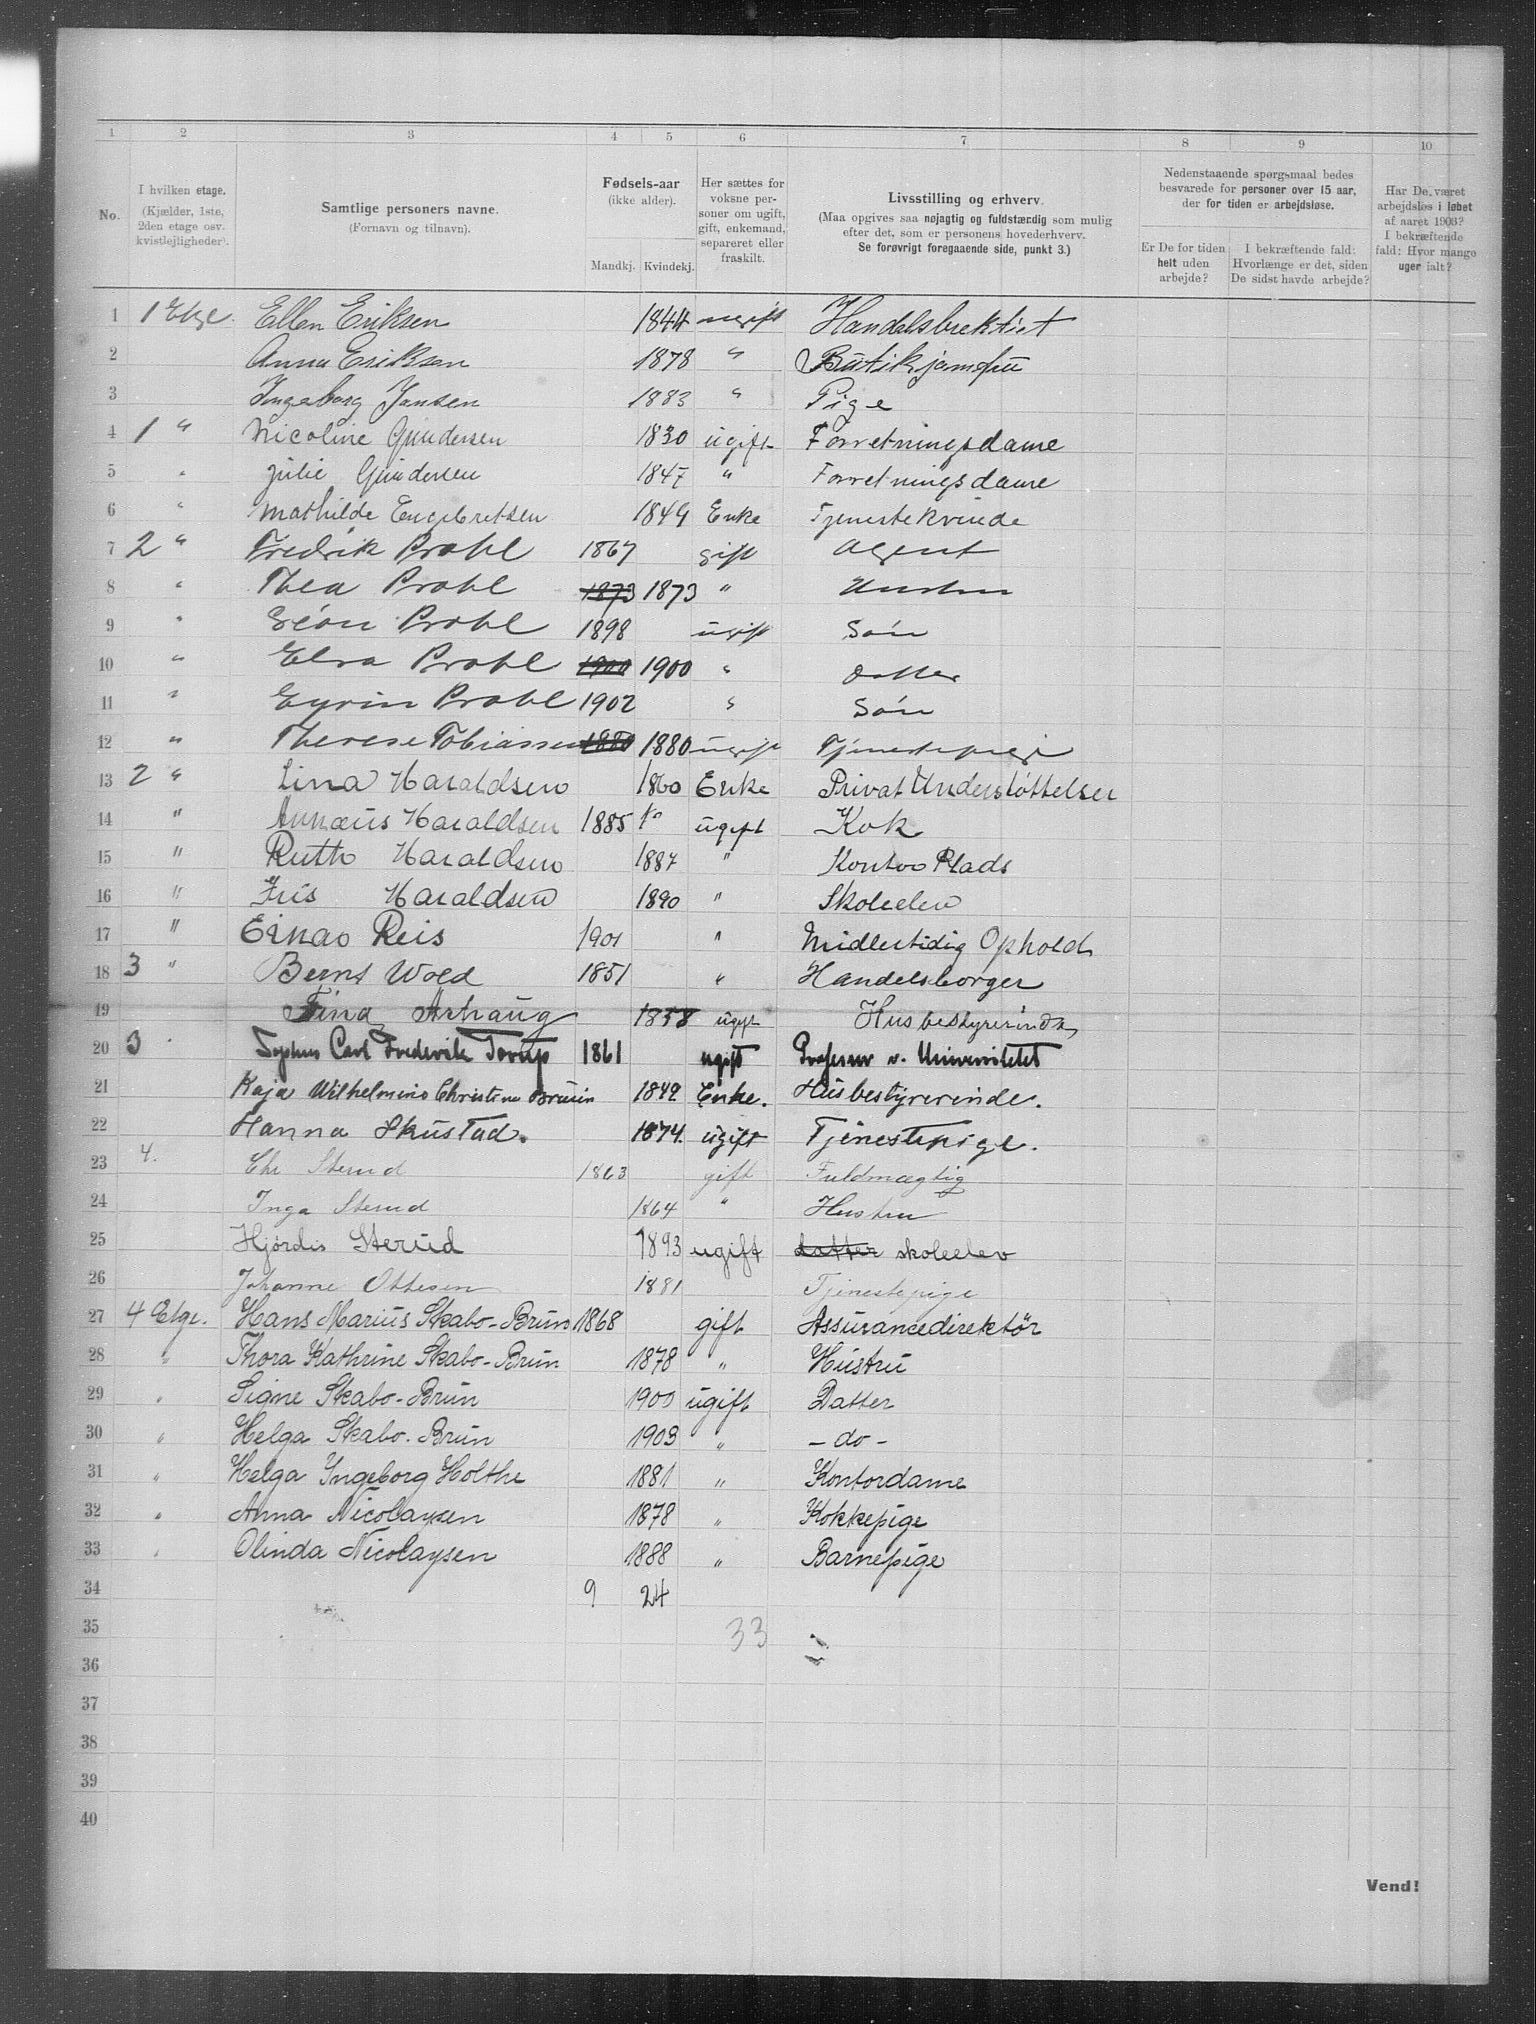 1 2 3 4 5 6 7 8 9 10
No.
I hvilken etage.
(Kjælder, 1ste,
2den etage osv.
kvistlejligheder).
Samtlige personers navne.
(Fornavn og tilnavn).
Fødsels-aar
(ikke alder).
Mandkj. Kvindekj.
Her sættes for
voksne per-
soner om ugift,
gift, enkemand,
separeret eller
fraskilt.
Livsstilling og erhverv.
(Maa opgives saa nøjagtig og fuldstændig som mulig
efter det, som er personens hovederhverv.
Se forøvrigt foregaaende side, punkt 3.)
Nedenstaaende spørgsmaal bedes
besvarede for personer over 15 aar,
der for tiden er arbejdsløse.
Er De for tiden
helt uden
arbejde?
I bekræftende fald:
Hvorlænge er det, siden
De sidst havde arbejde?
Har De været
arbejdsløs i løbet
af aaret 1903?
I bekræftende
fald: Hvor mange
uger ialt?
1 1 Etge Ellen Eriksen 1844 ugift
2 Anna Eriksen 1878 " Butikjomfru
3 Ingeborg Jansen 1883 " Pige
4 1 " Nicoline Gundersen 1830 ugift Forretningsdame
5 " Julie Gundersen 1847 " Forretningsdame
6 " Mathilde Engebretsen 1849 Enke Tjenestekvinde
7 2 " Fredrik Prohl 1867 gift Agent
8 " Thea Prohl 1873 1873 " Hustru
9 " Prohl 1898 ugift Søn
10 " Elva Prohl 1900 1900 " Datter
11 " Prohl 1902 " Søn
12 " Therese Tobiassen 1880 1880 ugift Tjenestepige
13 2 " Lina Haraldsen 1860 Enke Privat Understøttelser
14 " Annæus Haraldsen 1885 ugift Kok
15 " Ruth Haraldsen 1887 " Kontor Plads
16 " Iris Haraldsen 1890 " Skoleelev
17 " Einar Reis 1901 " Midlertidig Ophold
18 3 " Bernt Wold 1851 " Handelsborger
19 Tina Arhaug 1858 ugift Husbestyrerinde
20 3 " Sophus Carl Frederik Torup 1861 ugift Professor v. Universitetet
21 Kaja Wilhelmine Christine Bruun 1842 Enke. Husbestyrerinde.
22 Hanna Skustad. 1874. ugift Tjenestepige.
23 4. Chr Sterud 1863 gift Fuldmægtig
24 Inga Sterud 1864 " Hustru
25 Hjørdis Sterud 1893 ugift Datter skoleelev
26 Johanne Ottesen 1881 Tjenestepige
27 4 Etge. Hans Marius Skabo-Brun 1868 gift Assurancedirektør
28 " Thora Kathrine Skabo-Brun 1878 " Hustru
29 " Signe Skabo-Brun 1900 ugift Datter
30 " Helga Skabo-Brun 1903 " - do -
31 " Helga Ingeborg Holthe 1881 " Kontordame
32 " Anna Nicolaysen 1878 " Kokkepige
33 " Olinda Nicolaysen 1888 " Barnepige
34 9 24
35 33
36
37
38
39
40
Vend!